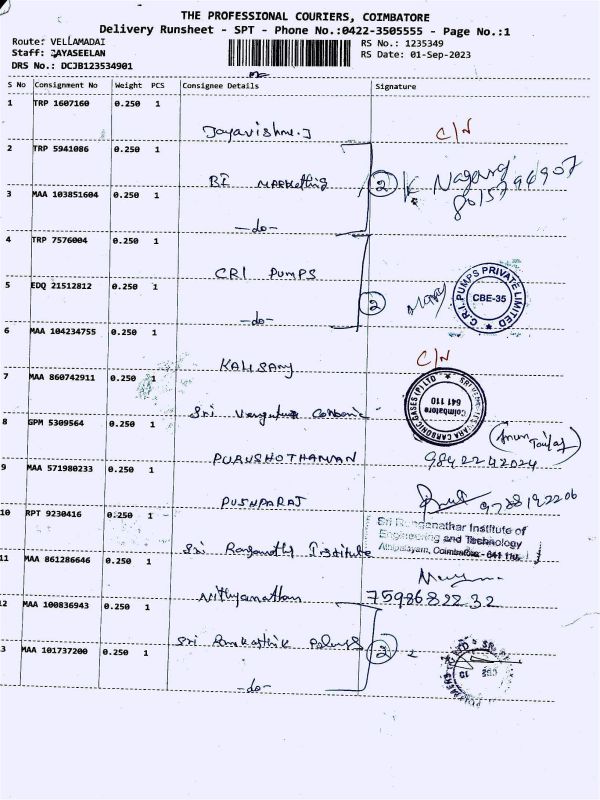 THE PROFESSIONAL COURIERS, COIMBATORE
Delivery Runsheet - SPT - Phone No.:0422-3505555 - Page No.:1
Route: VELLAMADAI
Staff: JAYASEELAN
DRS No.: DCJB123534901
RS No.: 1235349
RS Date: 01-Sep-2023
S No Consignment No Weight PCS Consignee Details Signature
1 TRP 1607160 0.250 1
C/N
2 TRP 5941086 0.250 1
BI Marketing 2 K. Nagaraj
3 MAA 103851604 0.250 1
-do-
4 TRP 7576004 0.250 1
CRI PUMPS
5 EDQ 21512812 0.250 1
-do- 2
C.R.I. PUMPS PRIVATE LIMITED
CBE-35
6 MAA 104234755 0.250 1
C/N
7 MAA 860742911 0.250 1
Sri
CARBONIC GASES (P) LTD
Coimbatore
641 110
8 GPM 5309564 0.250 1
PURUSHOTHAMAN 9842242024
9 MAA 571980233 0.250 1
PUSHPARAJ 9788192206
10 RPT 9230416 0.250 1
Sri Institute
Sri Ranganathar Institute of
Engineering and Technology
Athipalayam, Coimbatore - 641 110.
11 MAA 861286646 0.250 1
7598682232
12 MAA 100836943 0.250 1
Sri
13 MAA 101737200 0.250 1
-do- 2